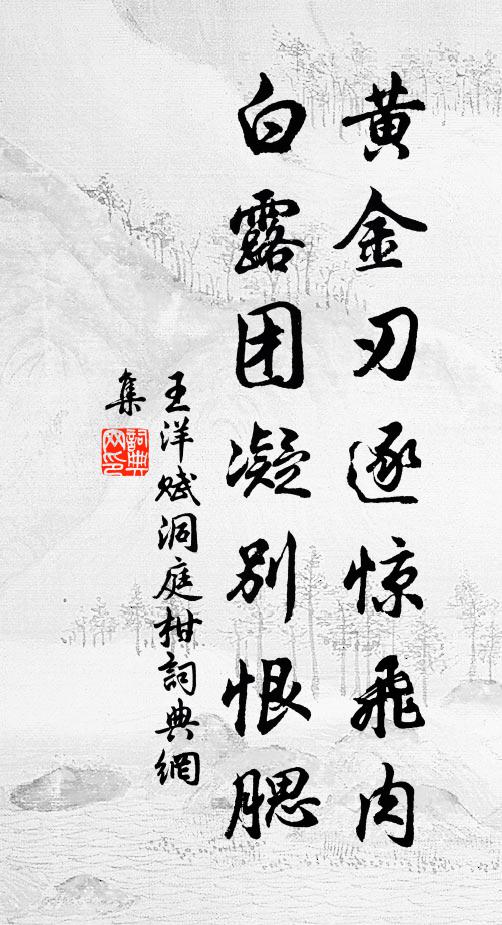 黄金刃逐惊飛肉
白露团凝别恨腮
王洋赋洞庭柑詞典網
集
詞典
网印